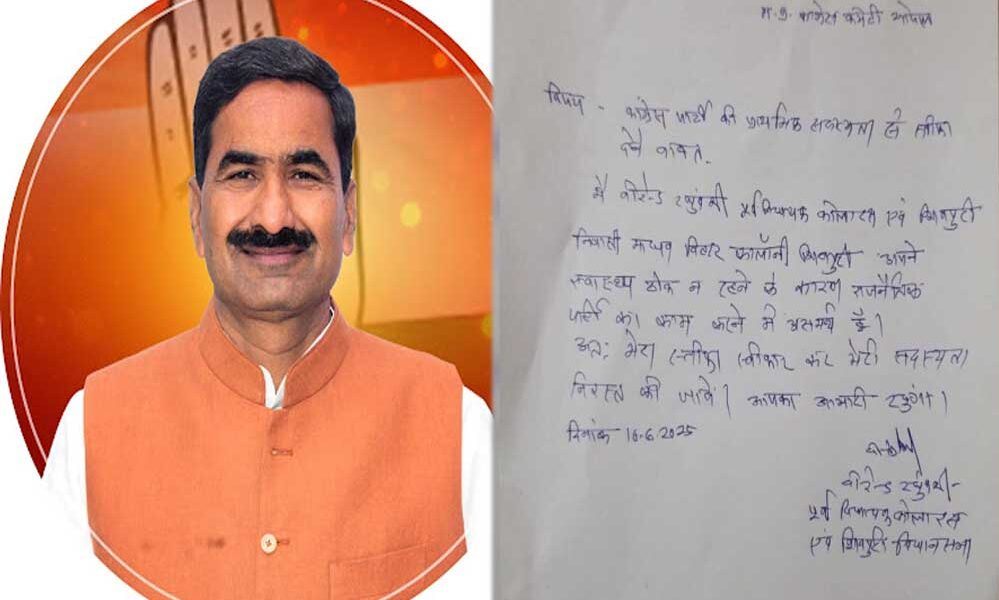 म.प्र. कांग्रेस कमेटी भोपाल
विषय - कांग्रेस पार्टी की प्राथमिक सदस्यता से स्तीफा
देने बावत.
मैं वीरेन्द्र रघुवंशी पूर्व विधायक कोलारस एवं शिवपुरी
निवासी माधव विहार कॉलॉनी शिवपुरी अपने
स्वास्थ्य ठीक न रहने के कारण राजनैतिक
पार्टी का काम करने में असमर्थ हूँ।
अतः मेरा स्तीफा स्वीकार कर मेरी सदस्यता
निरस्त की जावे। आपका आभारी रहूंगा।
दिनांक 16.6.2025
वीरेन्द्र रघुवंशी -
पूर्व विधायक कोलारस
एवं शिवपुरी विधानसभा